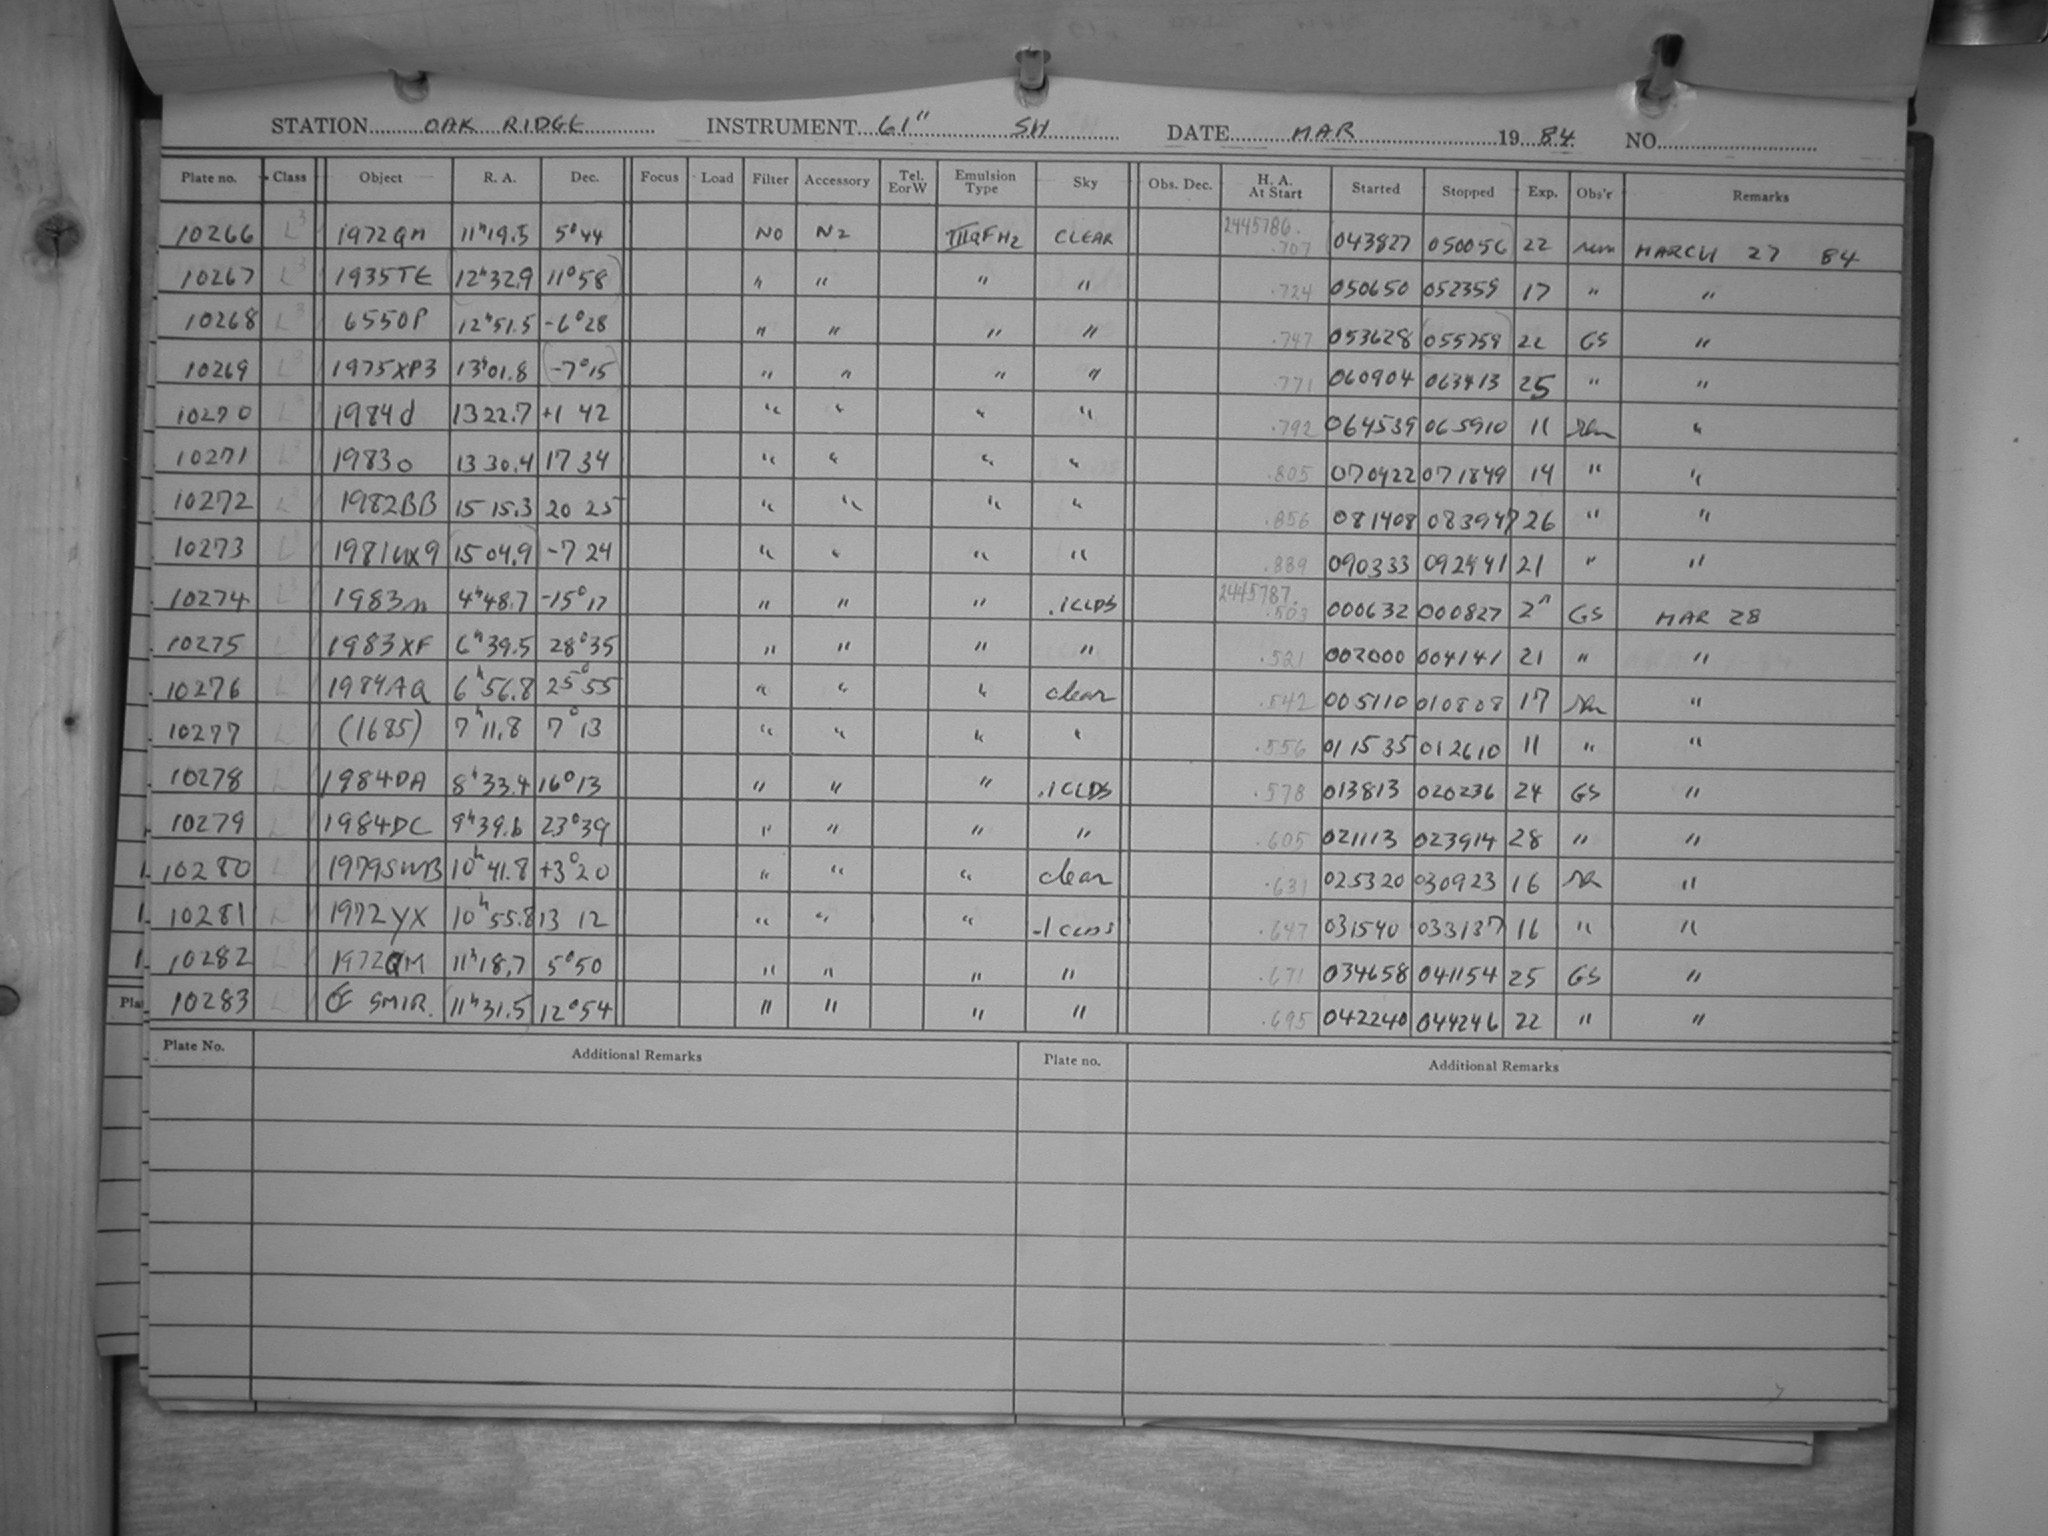 STATION OAK RIDGE INSTRUMENT 61" SH DATE MAR 19 84 NO.
Plate no. Class Object R. A. Dec. Focus Load Filter Accessory Tel. EorW Emulsion Type Sky Obs. Dec. H. A. At Start Started Stopped Exp. Obs'r Remarks
10266 L3 1972QM 11h19.5 5°44 NO N2 IIIaFH2 CLEAR 2445786. .707 043827 050056 22 MARCH 27 84
10267 L3 1935TE 12h32.9 11°58 " " " " .724 050650 052359 17 " "
10268 L3 6550P 12h51.5 -6°28 " " " " .747 053628 055759 22 GS "
10269 L3 1975XP3 13h01.8 -7°15 " " " " .771 060904 063413 25 " "
10270 L3 1984d 13 22.7 +1 42 " " " " .792 064539 065910 11 "
10271 L3 1983o 13 30.4 17 34 " " " " .805 070422 071849 14 " "
10272 L3 1982BB 15 15.3 20 25 " " " " .856 081408 083947 26 " "
10273 L3 1981UX9 15 04.9 -7 24 " " " " .889 090333 092441 21 " "
10274 L3 1983n 4h48.7 -15°17 " " " .1CLDS 2445787. .503 000632 000827 2m GS MAR 28
10275 L3 1983XF 6h39.5 28°35 " " " " .521 002000 004141 21 " "
10276 L3 1984AQ 6h56.8 25°55 " " " clear .542 005110 010808 17 "
10277 L (1685) 7h11.8 7°13 " " " " .556 011535 012610 11 " "
10278 L3 1984DA 8h33.4 16°13 " " " .1CLDS .578 013813 020236 24 GS "
10279 L 1984DC 9h39.6 23°39 " " " " .605 021113 023914 28 " "
10280 L 1979SWB 10h41.8 +3°20 " " " clear .631 025320 030923 16 "
10281 L 1972YX 10h55.8 13 12 " " " .1CLDS .647 031540 033137 16 " "
10282 L3 1972QM 11h18.7 5°50 " " " " .671 034658 041154 25 GS "
10283 L SMIR. 11h31.5 12°54 " " " " .695 042240 044246 22 " "
Plate No. Additional Remarks Plate no. Additional Remarks